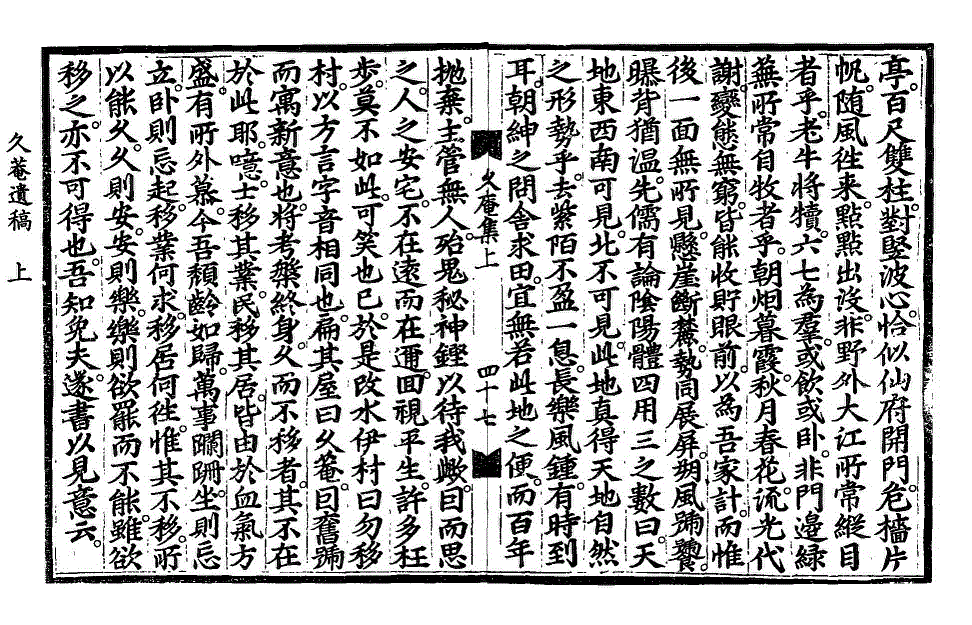 亭。百尺雙柱。對竪波心。恰似仙府開門。危檣片
帆。随風徃來。點點出没。非野外大江所常縱目
者乎。老牛將犢。六七為羣。或飮或卧。非門邉緑
蕪所常自牧者乎。朝烟暮霞。秋月春花。流光代
謝。變態無窮。皆能收貯眼前。以為吾家計。而惟
後一面無所見。懸崖斷麓。勢同展屏。朔風號饕。
曝背猶溫。先儒有論陰陽體四用三之數曰。天
地東西南可見。北不可見。此地真得天地自然
之形勢乎。去紫陌不盈一息。長樂風鍾。有時到
耳。朝紳之問舍求田。宜無若此地之便。而百年
久庵集上 四十七
抛棄。主管無人。殆鬼秘神鏗以待我歟。因而思
之。人之安宅。不在遠而在邇。回視平生。許多枉
歩。莫不如此。可笑也已。於是改水伊村曰勿移
村。以方言字音相同也。扁其屋曰久菴。因舊號
而寓新意也。將考槃終身。久而不移者。其不在
於此耶。噫。士移其業。民移其居。皆由於血氣方
盛。有所外慕。今吾頹齡如歸。萬事闌珊。坐則忘
立。卧則忘起。移業何求。移居何徃。惟其不移。所
以能久。久則安。安則樂。樂則欲罷而不能。雖欲
移之。亦不可得也。吾知免夫。遂書以見意云。
久菴遺稿 上